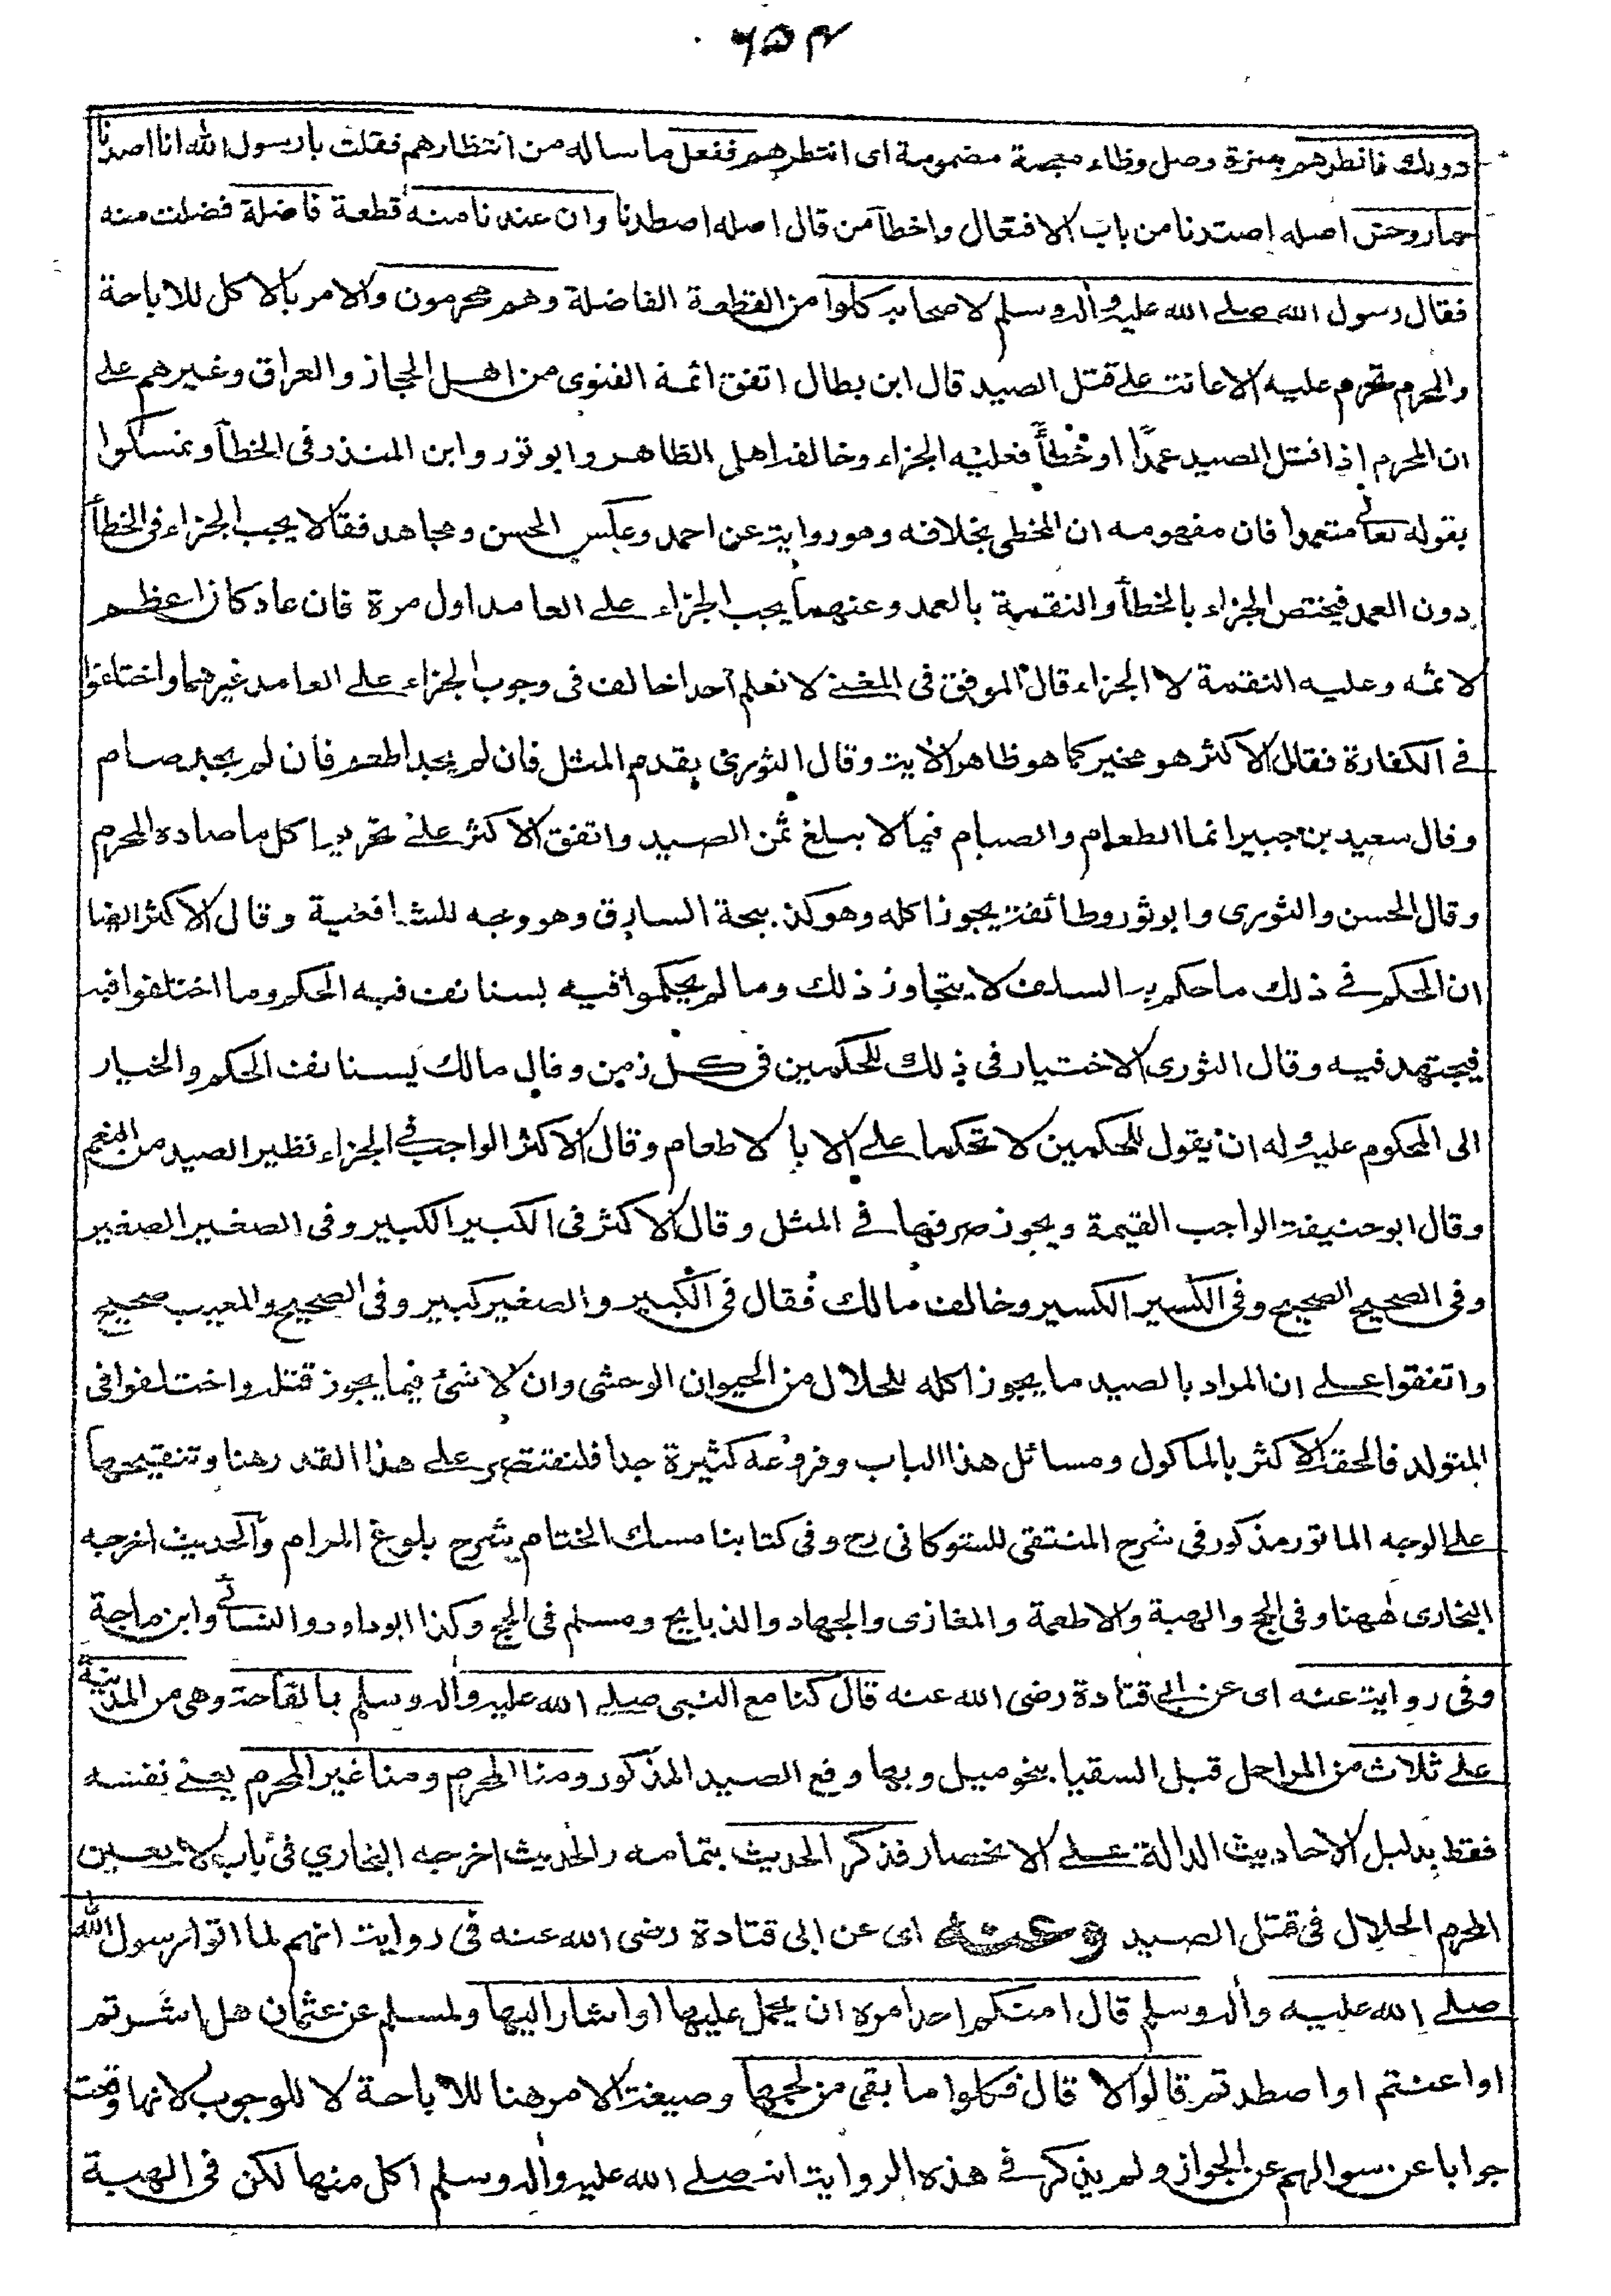 ۶۵۴
دونك فانظرهم بهمزة وصل وظاء معجمة مضمومة اى انتظرهم ففعل ما ساله من انتظارهم فقلت يا رسول الله انا اصدنا
حمار وحش اصله اصتدنا من باب الافتعال واخطأ من قال اصله اصطدنا وان عندنا منه قطعة فاضلة فضلت منه
فقال رسول الله صلى الله عليه وآله وسلم لاصحابه كلوا من القطعة الفاضلة وهم محرمون والامر بالاكل للاباحة
والمحرم تحرم عليه الاعانة على قتل الصيد قال ابن بطال اتفق ائمة الفتوى من اهل الحجاز والعراق وغيرهم على
ان المحرم اذا قتل الصيد عمدا او خطأ فعليه الجزاء وخالف اهل الظاهر وابو ثور وابن المنذر فى الخطأ وتمسكوا
بقوله تعالى متعمدا فان مفهومه ان المخطى بخلافه وهو رواية عن احمد وعكس الحسن ومجاهد فقالا يجب الجزاء فى الخطأ
دون العمد فيختص الجزاء بالخطأ والنقمة بالعمد وعنهما يجب الجزاء على العامد اول مرة فان عاد كان اعظم
لاثمه وعليه النقمة لا الجزاء قال الموفق فى المغنى لا نعلم احدا خالف فى وجوب الجزاء على العامد غيرهما واختلفوا
فى الكفارة فقال الاكثر هو مخير كما هو ظاهر الاية وقال الثورى يقدم المثل فان لم يجد اطعم فان لم يجد صام
وقال سعيد بن جبير انما الطعام والصيام فيما لا يبلغ ثمن الصيد واتفق الاكثر على تحريم اكل ما صاده المحرم
وقال الحسن والثورى وابو ثور وطائفة يجوز اكله وهو كذبيحة السارق وهو وجه للشافعية وقال الاكثر ايضا
ان الحكم فى ذلك ما حكم به السلف لا يتجاوز ذلك وما لم يحكموا فيه يستانف فيه الحكم وما اختلفوا فيه
فيجتهد فيه وقال الثورى الاختيار فى ذلك للحكمين فى كل زمن وقال مالك يستانف الحكم والخيار
الى المحكوم عليه وله ان يقول للحكمين لا تحكما على الا بالاطعام وقال الاكثر الواجب فى الجزاء نظير الصيد من النعم
وقال ابو حنيفة الواجب القيمة ويجوز صرفها فى المثل وقال الاكثر فى الكبير الكبير وفى الصغير الصغير
وفى الصحيح الصحيح وفى الكسير الكسير وخالف مالك فقال فى الكبير والصغير كبير وفى الصحيح والمعيب صحيح
واتفقوا على ان المراد بالصيد ما يجوز اكله للحلال من الحيوان الوحشى وان لا شئ فيما يجوز قتله واختلفوا فى
المتولد فالحقه الاكثر بالماكول ومسائل هذا الباب وفروعه كثيرة جدا فلنقتصر على هذا القدر هنا وتنقيحها
على الوجه الماثور مذكور فى شرح المنتقى للشوكانى رح وفى كتابنا مسك الختام شرح بلوغ المرام والحديث اخرجه
البخارى ههنا وفى الحج والهبة والاطعمة والمغازى والجهاد والذبايح ومسلم فى الحج وكذا ابو داود والنسائى وابن ماجة
وفى رواية عنه اى عن ابى قتادة رضى الله عنه قال كنا مع النبى صلى الله عليه وآله وسلم بالقاحة وهى من المدينة
على ثلاث من المراحل قبل السقيا بنحو ميل وبها وقع الصيد المذكور ومنا المحرم ومنا غير المحرم يعنى نفسه
فقط بدليل الاحاديث الدالة على الانحصار فذكر الحديث بتمامه والحديث اخرجه البخاري فى باب لا يعين
المحرم الحلال فى قتل الصيد وعنه اى عن ابى قتادة رضى الله عنه فى رواية انهم لما اتوا رسول الله
صلى الله عليه وآله وسلم قال امنكم احد امره ان يحمل عليها او اشار اليها ولمسلم عن عثمان هل اشرتم
او اعنتم او اصطدتم قالوا لا قال فكلوا ما بقى من لحمها وصيغة الامر هنا للاباحة لا للوجوب لانها وقعت
جوابا عن سوالهم عن الجواز ولم يذكر فى هذه الرواية انه صلى الله عليه وآله وسلم اكل منها لكن فى الهبة